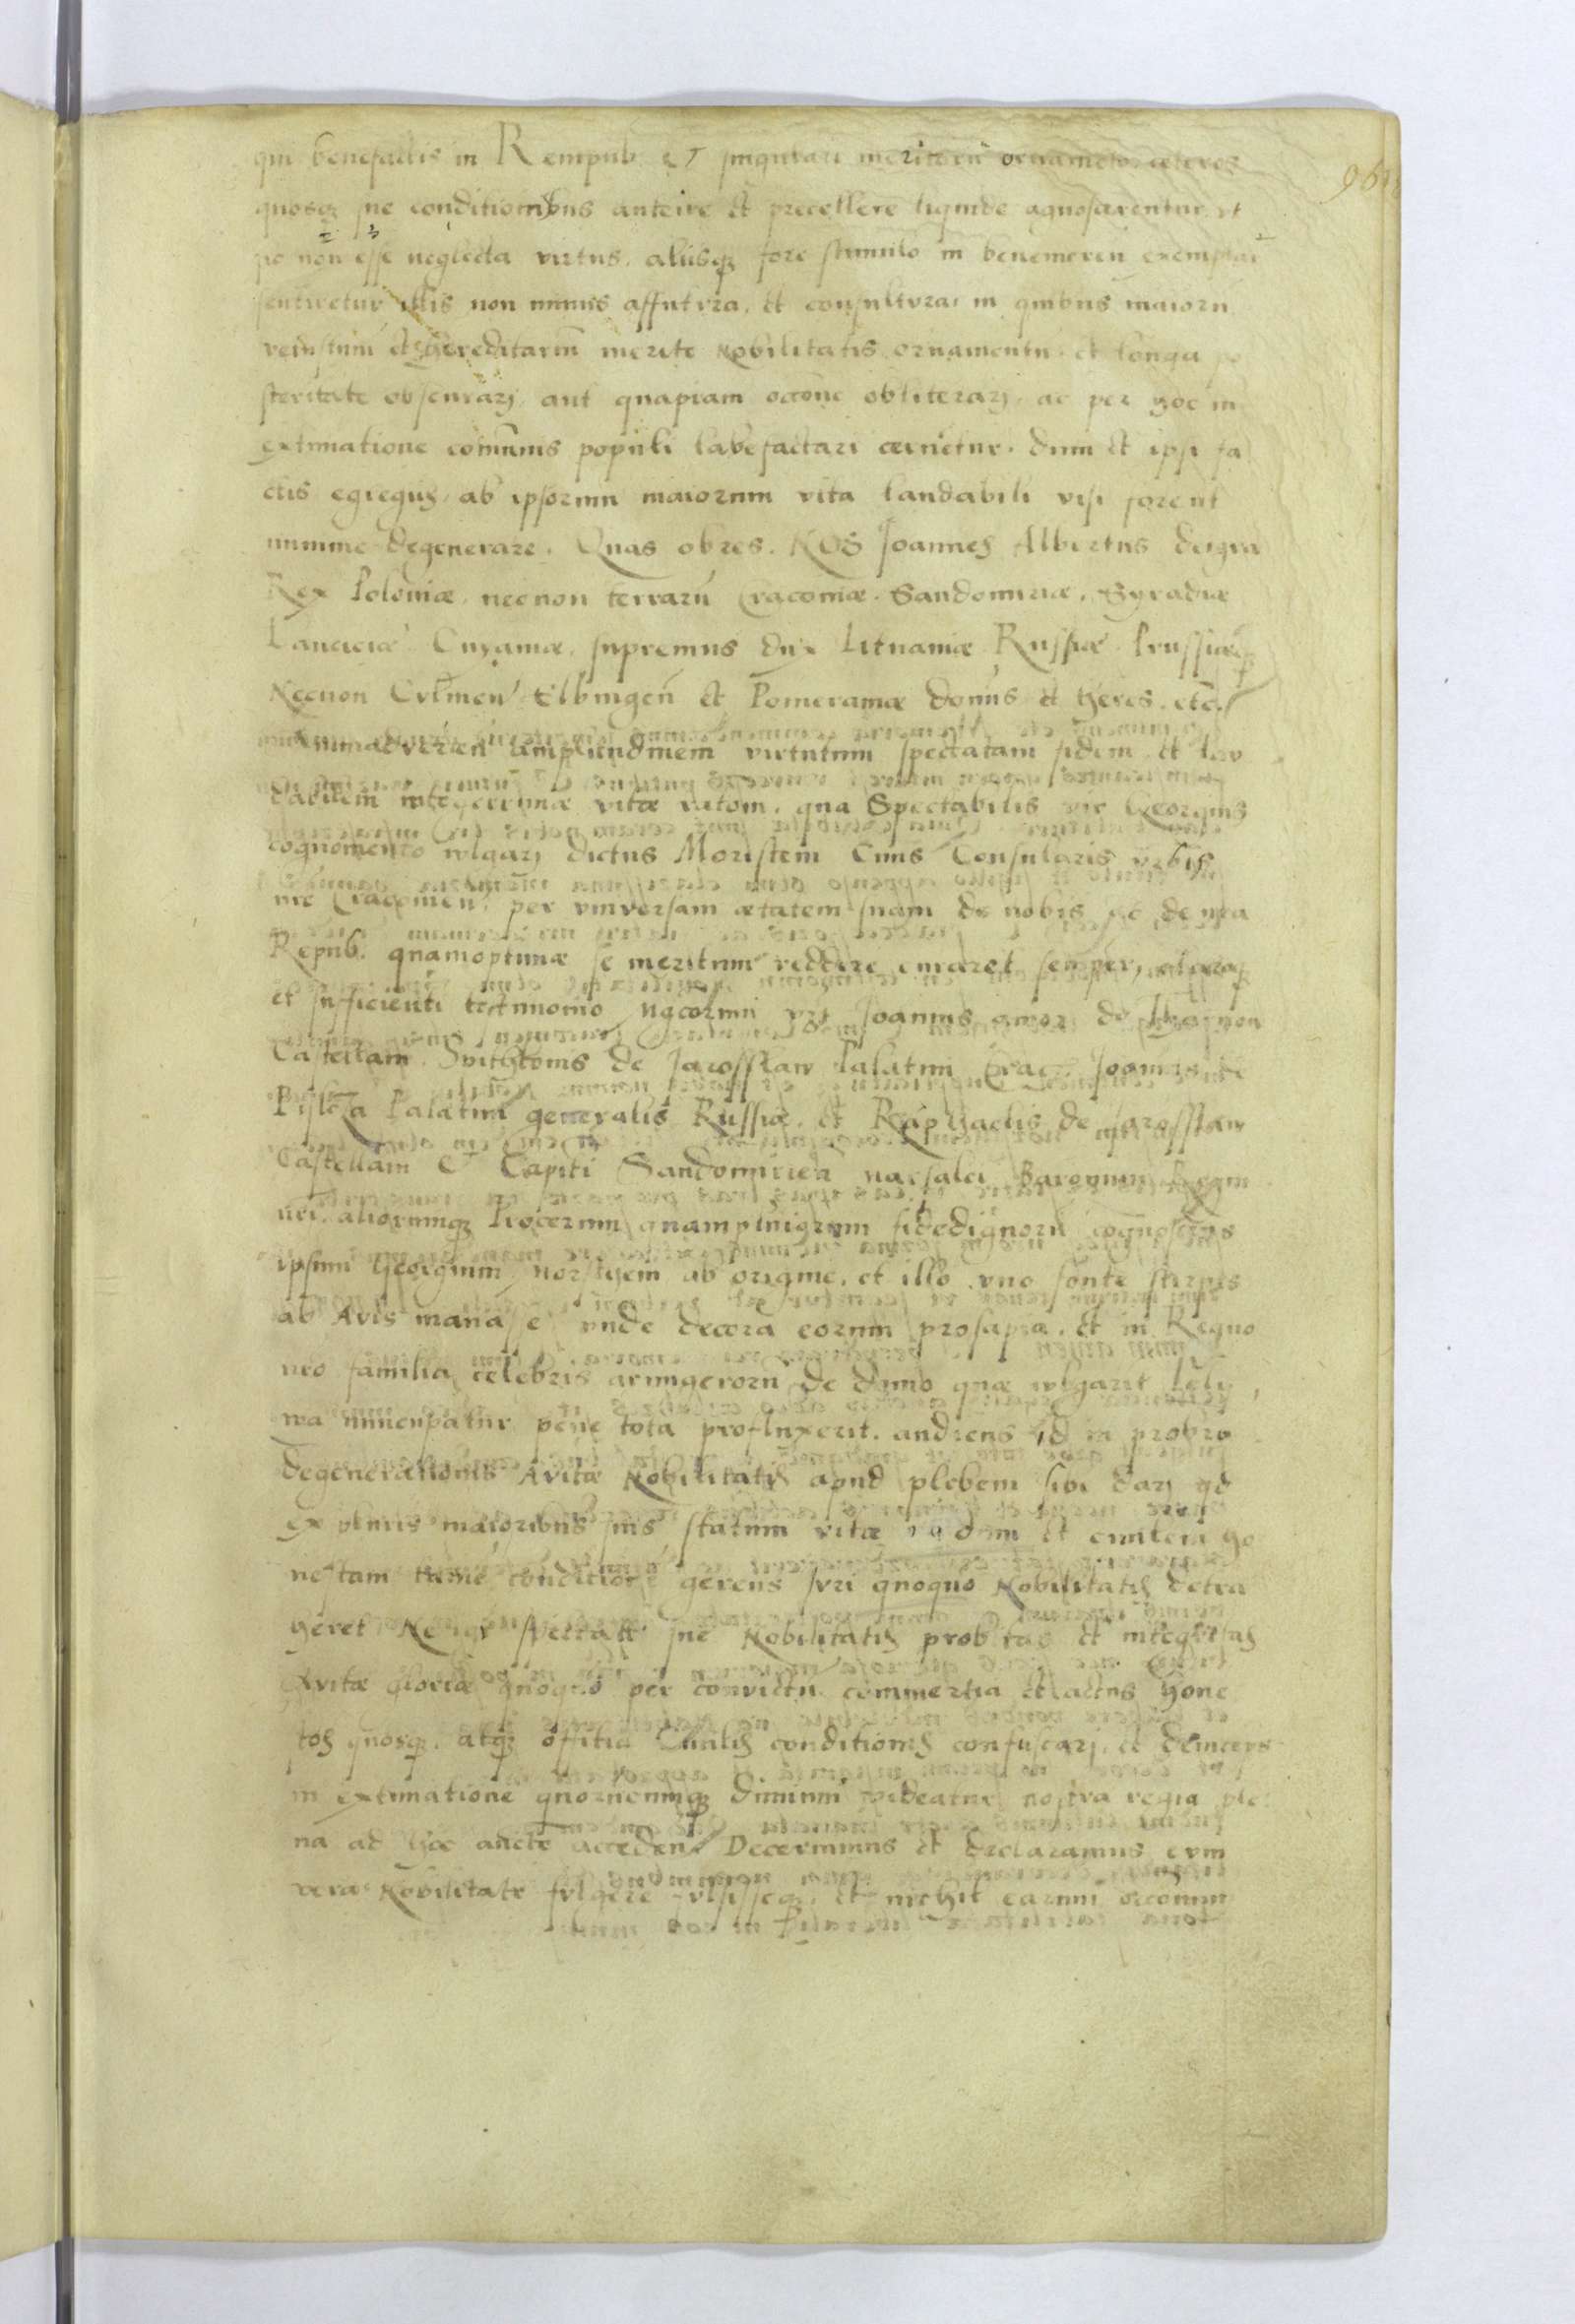 961
qui benefactis in Rempub. et singulari meritorū ornamēto, ceteros
quosq; sue conditionibus anteire et precellere liquide agnoscerentur, ut
non esse neglecta virtus, aliisq; fore stimulo in benemeren exemplar
sentiretur illis non minus affutura, et consultura, in quibus maiorū
vetustum et hereditarium merite Nobilitatis ornamentū et longa po
steritate obscurarj, aut quapiam occõne obliterarj, ac per hoc in
extimatione cõmunis populi labefactari cerneretur. dum et ipsi fa
ctis egregijs ab ipsorum maiorum vita laudabili visi forent
minime degenerare. Quas obres. NOS Joannes Albertus dei gra
Rex Poloniæ, necnon terrarū Cracoviæ. Sandomiriæ. Syradiæ
Lanciciæ Cuyaviæ, supremus dux Lituaniæ Russiæ Prussiæq;
Necnon Culmen̄ Elbingen̄ et Pomeraniæ doms et heres. etc.
animadverten̄ amplitudinem virtutum spectatam fidem et lau
dabilem integerrimæ vitæ ratom. qua Spectabilis vir Georgius
cognomento vlgarj dictus Moristein Civis Consularis vrbis
nre Cracovien̄. per vniversam ætatem suam de nobis ac de nra
Repub. quamoptime se meritum reddere curaret semper, clara
et sufficienti testimonio Joannis amor de Tharnow
Castellani Spithconis de Jarosslaw Palatini Crac. Joannis de
Pilcza Palatini generalis Russiæ. et Raphaelis de Jarosslaw
Castellani & Capiti Sandomirien̄ Baronum Regni
nri. aliorumq; Procerum quamplurigrum fidedignorū cognoscens
ipsum Georgium Morsthein ab origine. et illo vno fonte stirpis
ab Avis manasse vnde decora eorum prosapia. et in Regno
nro familia celebris armigerorū de domo quæ vlgarit Leli
wa nuncupatur pene tota profluxerit. audiens id in probro
degenerationis Avitæ Nobilitatis apud plebem sibi darj qd
ex plenis maioribus suis statum vitæ et civilem ho
nestam tame conditione gerens Juri quoquo Nobilitatis detra
heret Ne igr spectate sue Nobilitatis probitas et integritas
Avitæ gloriæ quoquo per convictū commertia et actus hone
tos quosq;. atq; offitia Civilis conditionis confuscarj. et deinceps
in extimatione quorūcumq; diminui videatur nostra regia ple
na ad hæc aucte acceden̄ Decernimus et declaramus eum
vera Nobilitate fulgere fulsisseq;. et nichil earum occonum